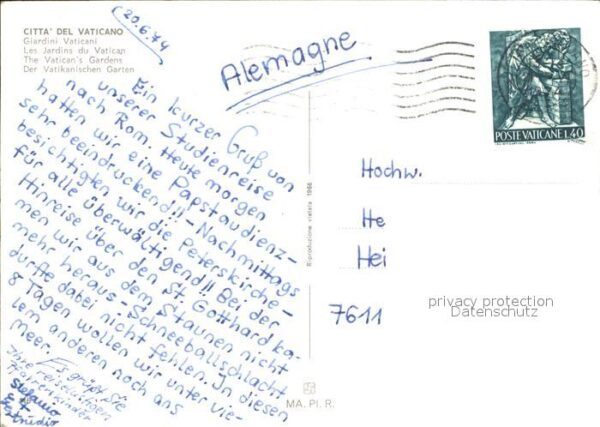 (20.6.74)
CITTA' DEL VATICANO
Giardini Vaticani
Les Jardins du Vatican
The Vatican's Gardens
Der Vatikanischen Garten
Alemagne
POSTE VATICANE L.40
Ein kurzer Gruß von
unserer Studienreise
nach Rom. Heute morgen
hatten wir eine Papstaudienz-
sehr beeindruckend!!-Nachmittags
besichtigten wir die Peterskirche-
für alle überwältigend!! Bei der
Hinreise über den St. Gotthard ka-
men wir aus dem Staunen nicht
mehr heraus-Schneeballschlacht
durfte dabei nicht fehlen. In diesen
8 Tagen wollen wir unter vie-
lem anderen noch ans
Meer.
Es grüßt Sie
Ihre
Pfarrerskinder
Stefano
Hochw.
He
Hei
7611
privacy protection
Datenschutz
Riproduzione vietata 1966
MA. PI. R.